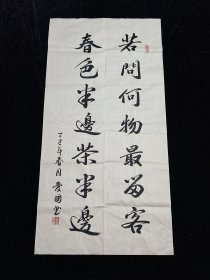 若問何物最留客
春色半邊茶半邊
丁巳年春月 愛國書